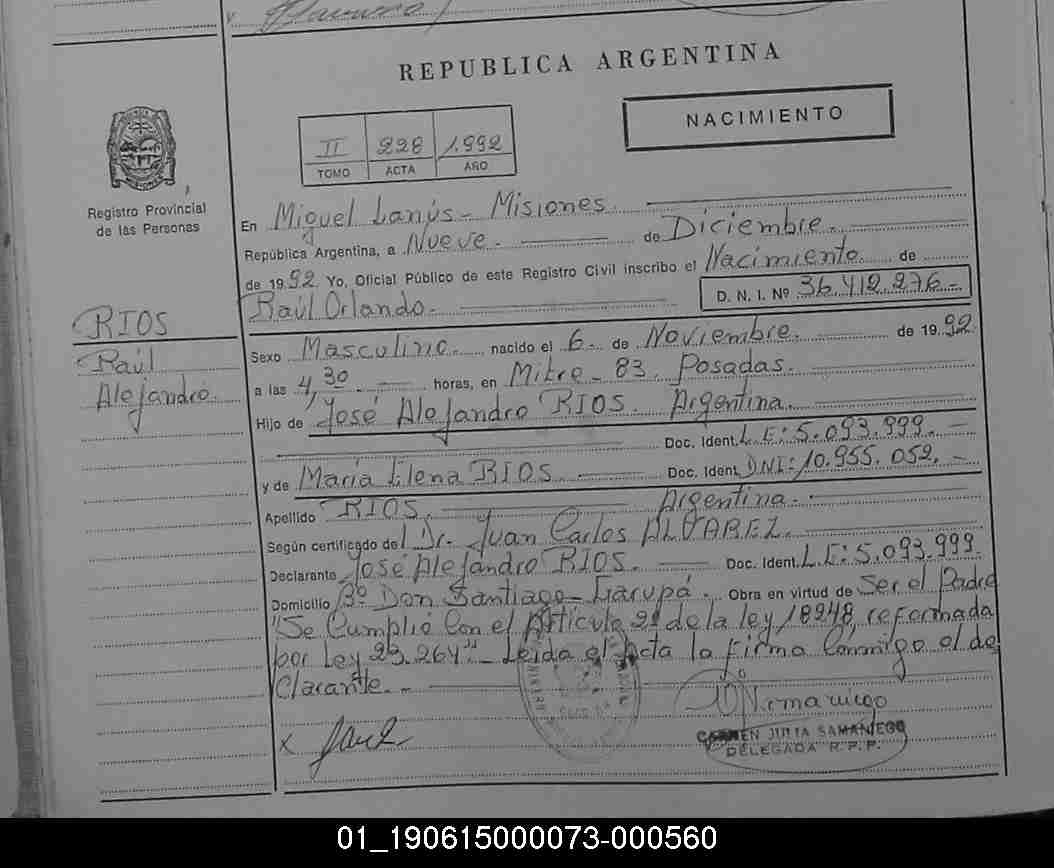 REPUBLICA ARGENTINA
NACIMIENTO
II 228 1992
TOMO ACTA AÑO
Registro Provincial
de las Personas
RIOS
Raúl
Alejandro.
En Miguel Lanús - Misiones.
República Argentina, a Nueve. de Diciembre.
de 1992 Yo, Oficial Público de este Registro Civil inscribo el Nacimiento de
Raúl Orlando. D. N. I. Nº 36.412.276.-
Sexo Masculino. nacido el 6. de Noviembre. de 1992
a las 4,30 horas, en Mitre - 83. Posadas.
Hijo de José Alejandro RIOS. Argentina.
Doc. Ident. L.E: 5.093.999.-
y de María Elena RIOS Doc. Ident. DNI: 10.955.052.-
Apellido RIOS. Argentina.
Según certificado del Dr. Juan Carlos ALVAREZ.
Declarante José Alejandro RIOS. Doc. Ident. L.E: 5.093.999.
Domicilio Bº Don Santiago - Garupá. Obra en virtud de Ser el Padre
"Se Cumplió Con el Artículo 2º de la ley 18248, reformada
por Ley 23.264". - Leída el Acta la firma Conmigo el de
Clarante. -
X
CARMEN JULIA SAMANIEGO
DELEGADA R.P.P.
01_190615000073-000560